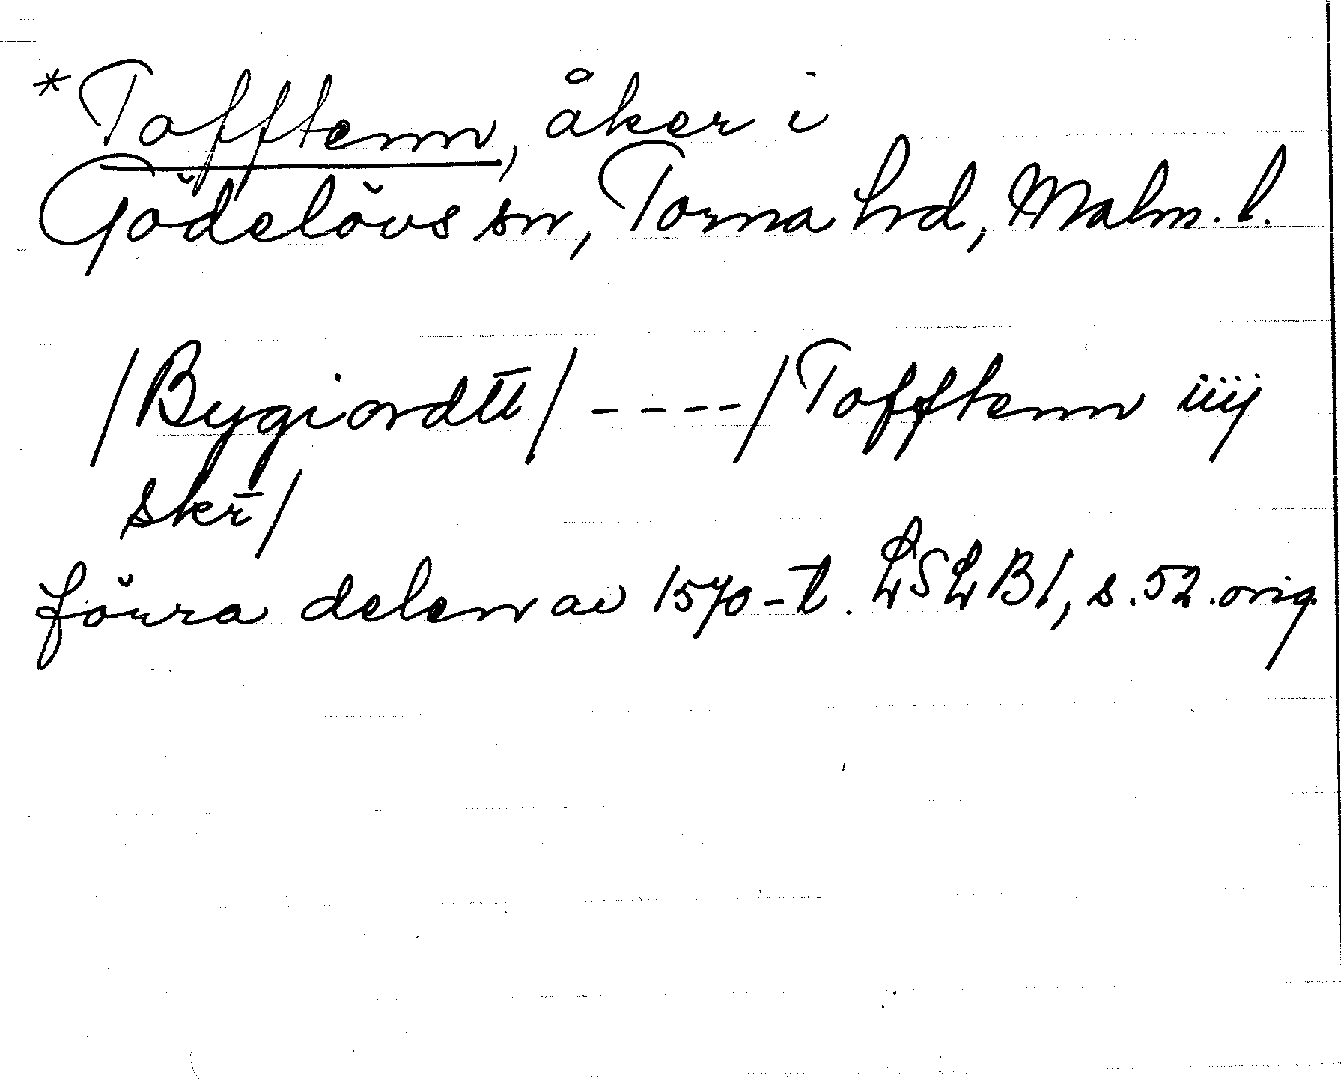 *Tofftenn, åker i
Gödelövs sn, Torna hrd, Malm. l.
/Bygiordtt/ ----/Tofftenn iiij
skr̄/
förra delen av 1570-t. LSLB1, s.52.orig.